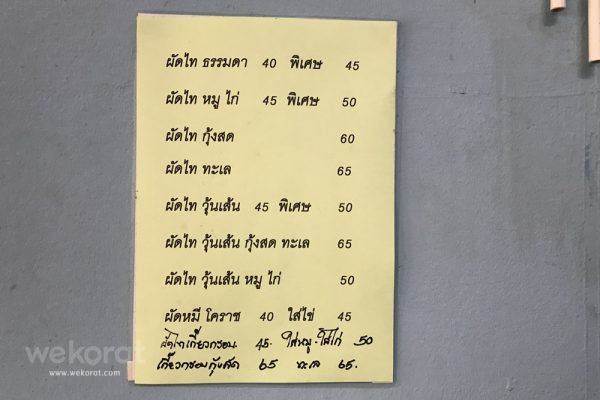 ผัดไท ธรรมดา 40 พิเศษ 45
ผัดไท หมู ไก่ 45 พิเศษ 50
ผัดไท กุ้งสด 60
ผัดไท ทะเล 65
ผัดไท วุ้นเส้น 45 พิเศษ 50
ผัดไท วุ้นเส้น กุ้งสด ทะเล 65
ผัดไท วุ้นเส้น หมู ไก่ 50
ผัดหมี่ โคราช 40 ใส่ไข่ 45
ผัดไทเกี๊ยวกรอบ 45. ใส่หมู-ใส่ไก่ 50
เกี๊ยวกรอบกุ้งสด 65 ทะเล 65.
wekorat
www.wekorat.com